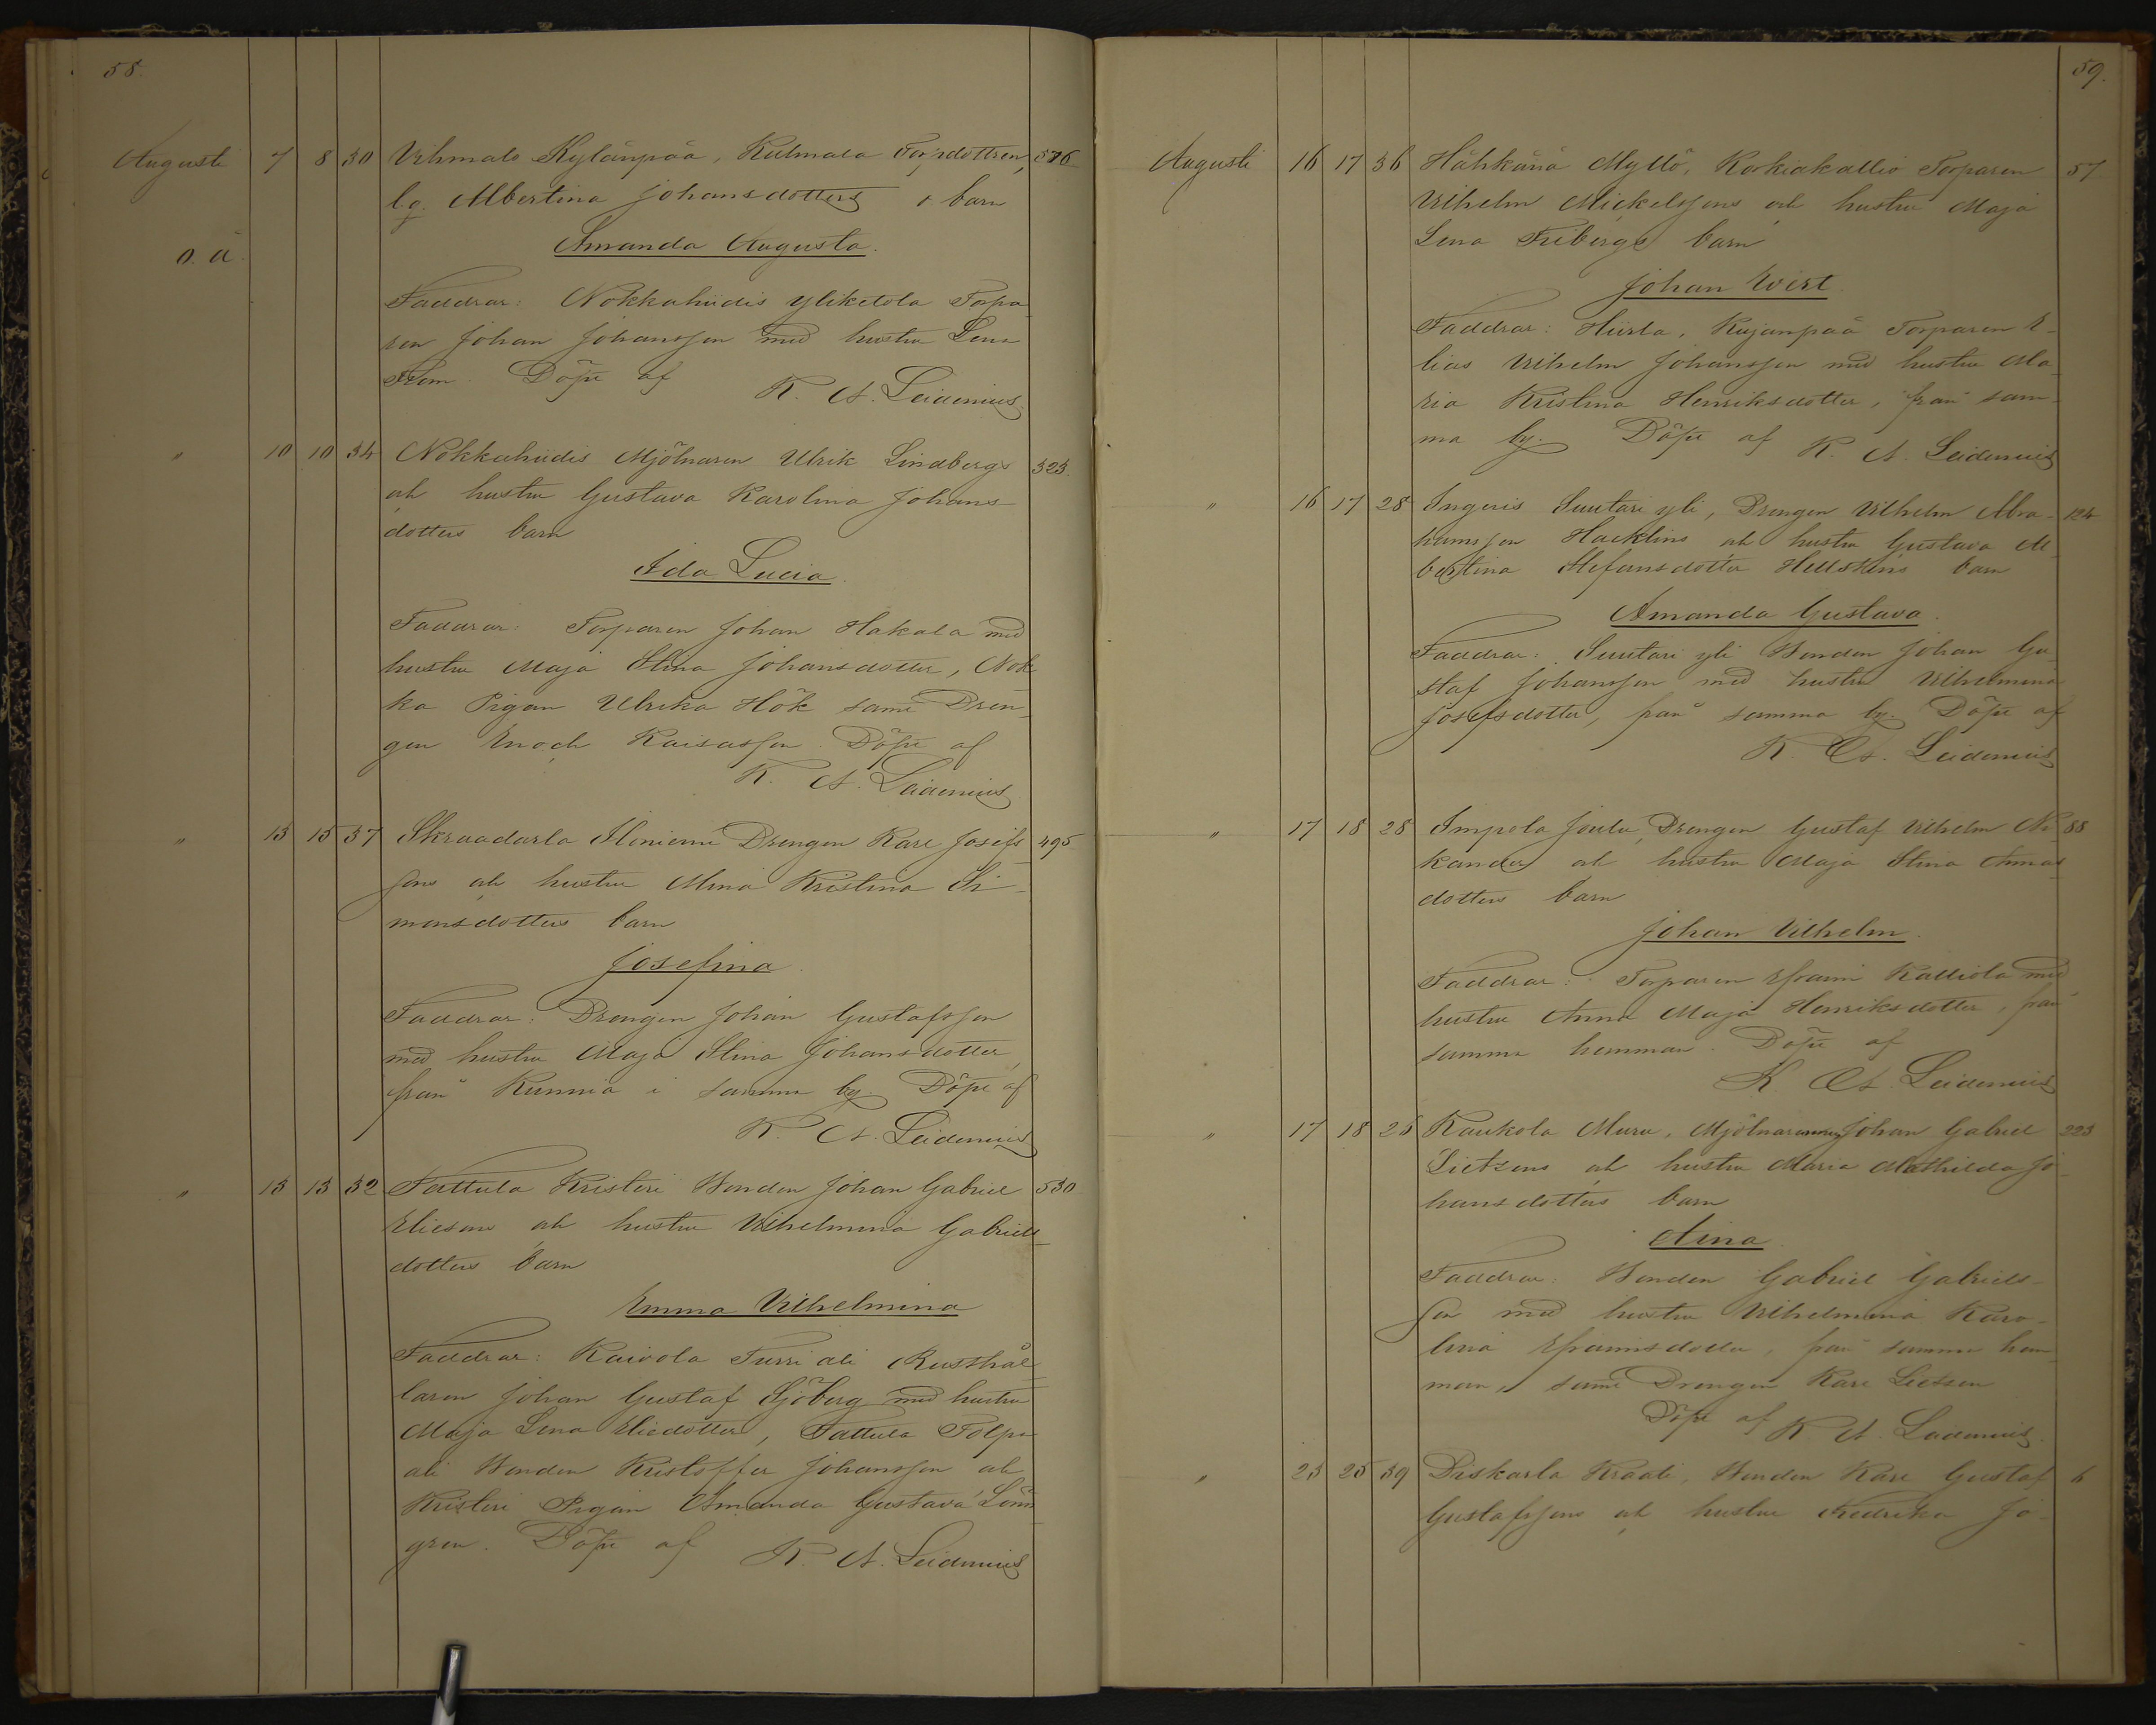 58.
Augusti 7 8 30 Vihmalo Kylänpää, Kulmala Torpdottren, 576
lq. Albertina Johansdotters o barn
Amanda Augusta.
o. ä.
Faddrar: Nokkahiidis yliketola Torpa-
ren Johan Johansson med hustru Lena
Flem. Döpt af K. A. Leidenius
" 10 10 34 Nokkahiidis Mjölnaren Ulrik Lindbergs 323
och hustru Gustava Karolina Johans-
dotters barn
Ida Lucia.
Faddrar: Torparen Johan Hakala med
hustru Maja Stina Johansdotter, Nok
ka Pigan Ulrika Hök samt Dren-
gen Enoch Kaisasson. Döpt af
K. A. Leidenius
" 13 15 37 Skraadarla Iliniemi Drengen Karl Josefs- 495
sons och hustru Mina Kristina Si-
monsdotters barn
Josefina.
Faddrar: Drengen Johan Gustafsson
med hustru Maja Stina Johansdotter,
från Kunnia i samma by. Döpt af
K. A. Leidenius
" 13 13 32 Tattula Kristeri Bonden Johan Gabriel 530
Eliesons och hustru Vilhelmina Gabriels-
dotters barn
Emma Vilhelmina
Faddrar: Kaivola Turri ali Rusthål-
laren Johan Gustaf Sjöberg med hustru
Maja Lena Eliedotter, Tattula Tolpa
ali Bonden Kristoffer Johansson och
Kristeri Pigan Amanda Gustava Lönn
gren. Döpt af K. A. Leidenius
59.
Augusti 16 17 36 Hähkänä Myllö, Korkiakallio Torparen 57
Vilhelm Mickelssons och hustru Maja
Lena Fribergs barn
Johan Evert.
Faddrar: Hurla, Kujanpää Torparen E-
lias Vilhelm Johansson med hustru Ma-
ria Kristina Henriksdotter, från sam-
ma by. Döpt af K. A. Leidenius
" 16 17 28 Ingeris Suutari yli, Drengen Vilhelm Abra- 124
hamsson Hacklins och hustru Gustava Al-
bertina Stefansdotter Hellsténs barn
Amanda Gustava.
Faddrar: Suutari yli Bonden Johan Gu-
staf Johansson med hustru Vilhelmina
Josefsdotter, från samma by. Döpt af
K. A. Leidenius
" 17 18 28 Impola Joulu, Drengen Gustaf Vilhelm Ni- 88
kander och hustru Maja Stina Annas-
dotters barn
Johan Vilhelm.
Faddrar: Torparen Efraim Kalliola med
hustru Anna Maja Henriksdotter, från
samma hemman. Döpt af
K. A. Leidenius
" 17 18 26 Kaukola Muru, Mjölnaren Johan Gabriel 223
Lietzens och hustru Maria Mathilda Jo-
hansdotters barn
Aina.
Faddrar: Bonden Gabriel Gabriels-
son med hustru Vilhelmina Karo-
lina Efraimsdotter, från samma hem-
man, samt Drengen Karl Lietzen
Döpt af K. A. Leidenius.
" 23 25 39 Piskarla Kraali, Bonden Karl Gustaf 6
Gustafssons och hustru Fredrika Jo-